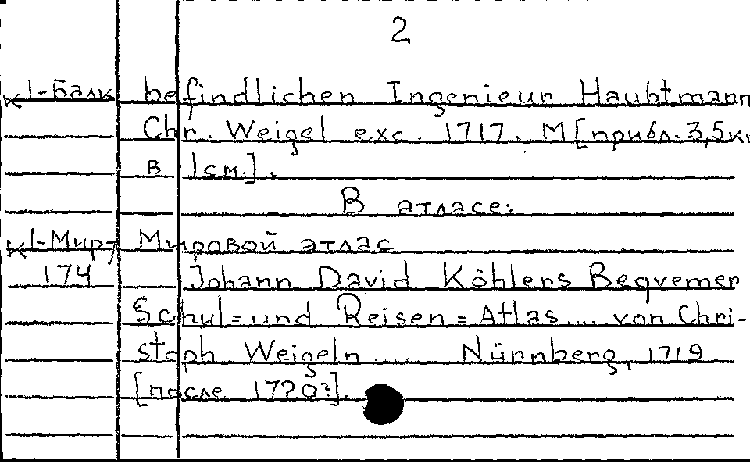 2
К1-Балк befindlichen Ingenieur Haubtmann
Chr. Weigel exc. 1717. М[прибл. 3,5км
в 1см].
В атласе:
К1-Мир7 Мировой атлас
174 Johann David Köhlers Beqvemer
Schul=und Reisen=Atlas... von Chri-
stoph Weigeln..... Nürnberg, 1719
[после 1720?].